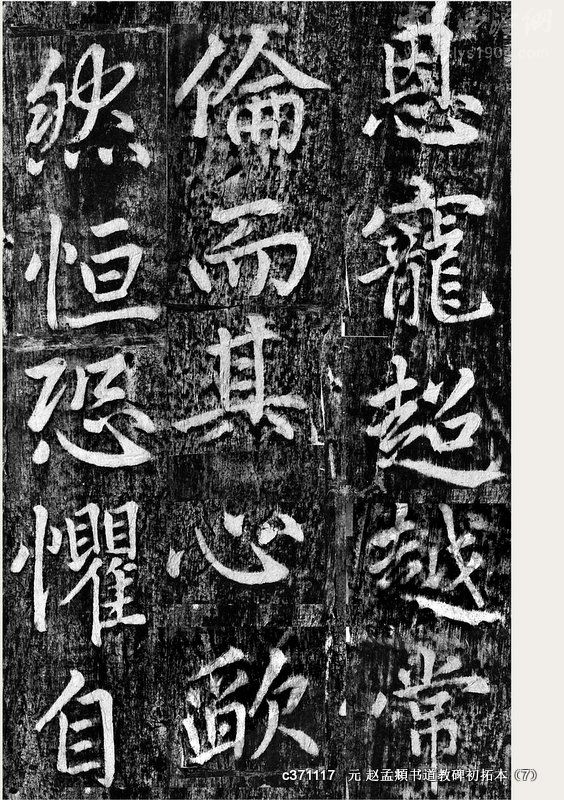 恩寵超越常
倫而其心欿
然恒恐懼自
c371117 元 赵孟頫书道教碑初拓本（7）